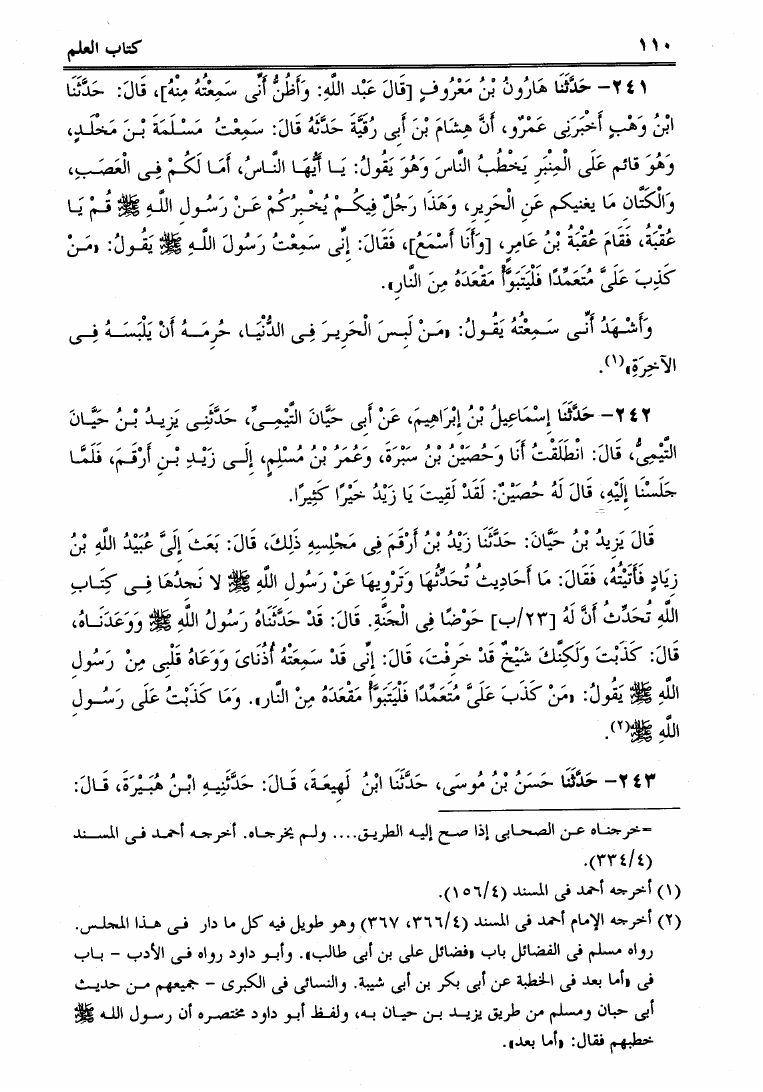 ١١٠ كتاب العلم
٢٤١- حَدَّثَنَا هَارُونُ بْنُ مَعْرُوفٍ [قَالَ عَبْد اللَّهِ: وَأَظُنُّ أَنِّى سَمِعْتُهُ مِنْهُ]، قَالَ: حَدَّثَنَا
ابْنُ وَهْبٍ أَخْبَرَنِى عَمْرٌو، أَنَّ هِشَامَ بْنَ أَبِى رُقَيَّةَ حَدَّثَهُ قَالَ: سَمِعْتُ مَسْلَمَةَ بْنَ مَخْلَدٍ،
وَهُوَ قائم عَلَى الْمِنْبَرِ يَخْطُبُ النَّاسَ وَهُوَ يَقُولُ: يَا أَيُّهَا النَّاسُ، أَمَا لَكُمْ فِى الْعَصَبِ،
وَالْكَتَّانِ مَا يغنيكم عَنِ الْحَرِيرِ، وَهَذَا رَجُلٌ فِيكُمْ يُخْبِرُكُمْ عَنْ رَسُولِ اللَّهِ ﷺ قُمْ يَا
عُقْبَةُ، فَقَامَ عُقْبَةُ بْنُ عَامِرٍ، [وَأَنَا أَسْمَعُ]، فَقَالَ: إِنِّى سَمِعْتُ رَسُولَ اللَّهِ ﷺ يَقُولُ: «مَنْ
كَذِبَ عَلَىَّ مُتَعَمِّدًا فَلْيَتَبَوَّأْ مَقْعَدَهُ مِنَ النَّارِ».
وَأَشْهَدُ أَنِّى سَمِعْتُهُ يَقُولُ: «مَنْ لَبِسَ الْحَرِيرَ فِى الدُّنْيَا، حُرِمَهُ أَنْ يَلْبَسَهُ فِى
الآخِرَةِ»(١).
٢٤٢- حَدَّثَنَا إِسْمَاعِيلُ بْنُ إِبْرَاهِيمَ، عَنْ أَبِى حَيَّانَ التَّيْمِىِّ، حَدَّثَنِى يَزِيدُ بْنُ حَيَّانَ
التَّيْمِىُّ، قَالَ: انْطَلَقْتُ أَنَا وَحُصَيْنُ بْنُ سَبْرَةَ، وَعُمَرُ بْنُ مُسْلِمٍ، إِلَى زَيْدِ بْنِ أَرْقَمَ، فَلَمَّا
جَلَسْنَا إِلَيْهِ، قَالَ لَهُ حُصَيْنٌ: لَقَدْ لَقِيتَ يَا زَيْدُ خَيْرًا كَثِيرًا.
قَالَ يَزِيدُ بْنُ حَيَّانَ: حَدَّثَنَا زَيْدُ بْنُ أَرْقَمَ فِى مَجْلِسِهِ ذَلِكَ، قَالَ: بَعَثَ إِلَىَّ عُبَيْدُ اللَّهِ بْنُ
زِيَادٍ فَأَتَيْتُهُ، فَقَالَ: مَا أَحَادِيثُ تُحَدِّثُهَا وَتَرْوِيهَا عَنْ رَسُولِ اللَّهِ ﷺ لا نَجِدُهَا فِى كِتَابِ
اللَّهِ تُحَدِّثُ أَنَّ لَهُ [٢٣/ب] حَوْضًا فِى الْجَنَّةِ. قَالَ: قَدْ حَدَّثَنَاهُ رَسُولُ اللَّهِ ﷺ وَوَعَدَنَاهُ،
قَالَ: كَذَبْتَ وَلَكِنَّكَ شَيْخٌ قَدْ خَرِفْتَ، قَالَ: إِنِّى قَدْ سَمِعَتْهُ أُذُنَاىَ وَوَعَاهُ قَلْبِى مِنْ رَسُولِ
اللَّهِ ﷺ يَقُولُ: «مَنْ كَذَبَ عَلَىَّ مُتَعَمِّدًا فَلْيَتَبَوَّأْ مَقْعَدَهُ مِنْ النَّارِ». وَمَا كَذَبْتُ عَلَى رَسُولِ
اللَّهِ ﷺ(٢).
٢٤٣- حَدَّثَنَا حَسَنُ بْنُ مُوسَى، حَدَّثَنَا ابْنُ لَهِيعَةَ، قَالَ: حَدَّثَنِيهِ ابْنُ هُبَيْرَةَ، قَالَ:
=خرجناه عن الصحابى إذا صح إليه الطريق.... ولم يخرجاه. أخرجه أحمد فى المسند
(٣٣٤/٤).
(١) أخرجه أحمد فى المسند (١٥٦/٤).
(٢) أخرجه الإمام أحمد فى المسند (٣٦٦/٤، ٣٦٧) وهو طويل فيه كل ما دار فى هذا المجلس.
رواه مسلم فى الفضائل باب «فضائل على بن أبى طالب». وأبو داود رواه فى الأدب - باب
فى «أما بعد فى الخطبة عن أبى بكر بن أبى شيبة. والنسائى فى الكبرى - جميعهم من حديث
أبى حبان ومسلم من طريق يزيد بن حيان به، ولفظ أبو داود مختصره أن رسول الله ﷺ
خطبهم فقال: «أما بعد».